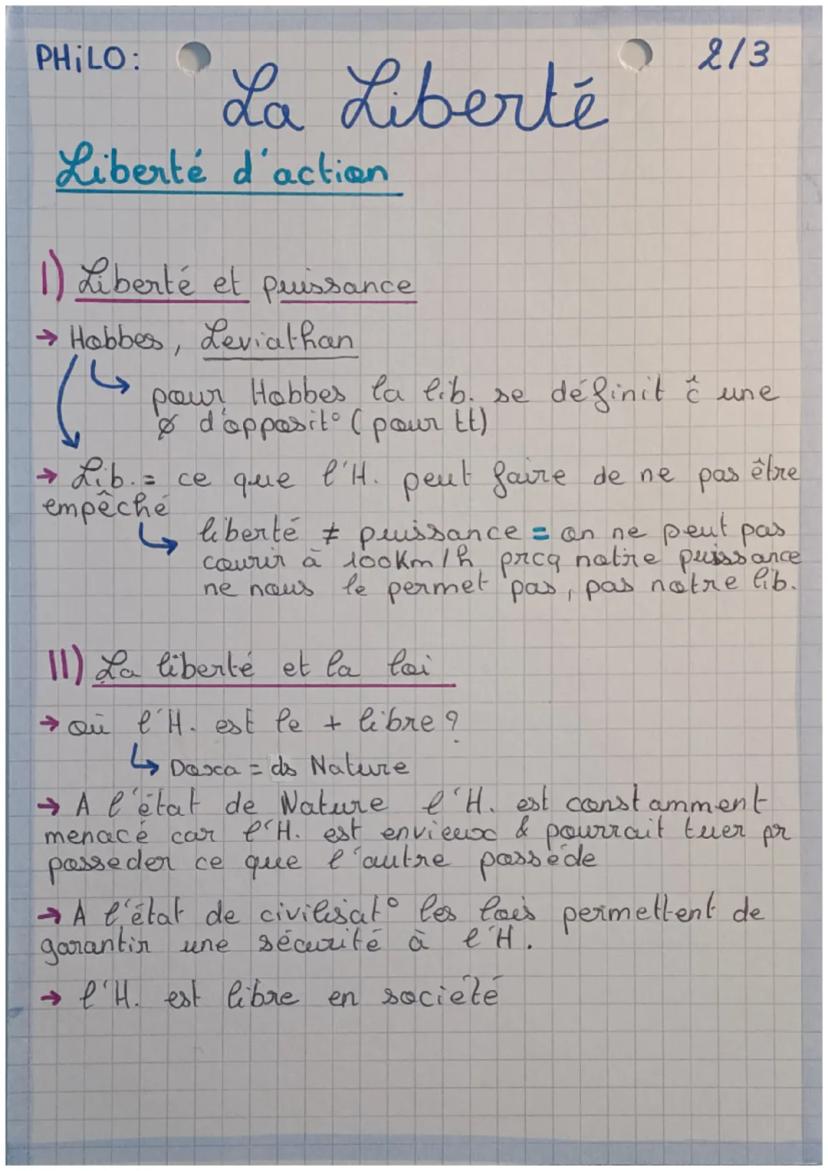 PHiLO:
2/3
La Liberté
Liberté d'action
I) Liberté et puissance
→ Hobbes, Leviathan
↳ pour Hobbes la lib. se définit ĉ une
∅ d'opposit° (pour tt)
→ Lib. = ce que l'H. peut faire de ne pas être
empêché
↳ liberté ≠ puissance = on ne peut pas
courir à 100Km/h prcq notre puissance
ne nous le permet pas, pas notre lib.
II) La liberté et la loi
→ où l'H. est le + libre ?
↳ Doxa = ds Nature
→ A l'état de Nature l'H. est constamment
menacé car l'H. est envieux & pourrait tuer pr
posseder ce que l'autre possède
→ A l'état de civilisat° les lois permettent de
garantir une sécurité à l'H.
→ l'H. est libre en société